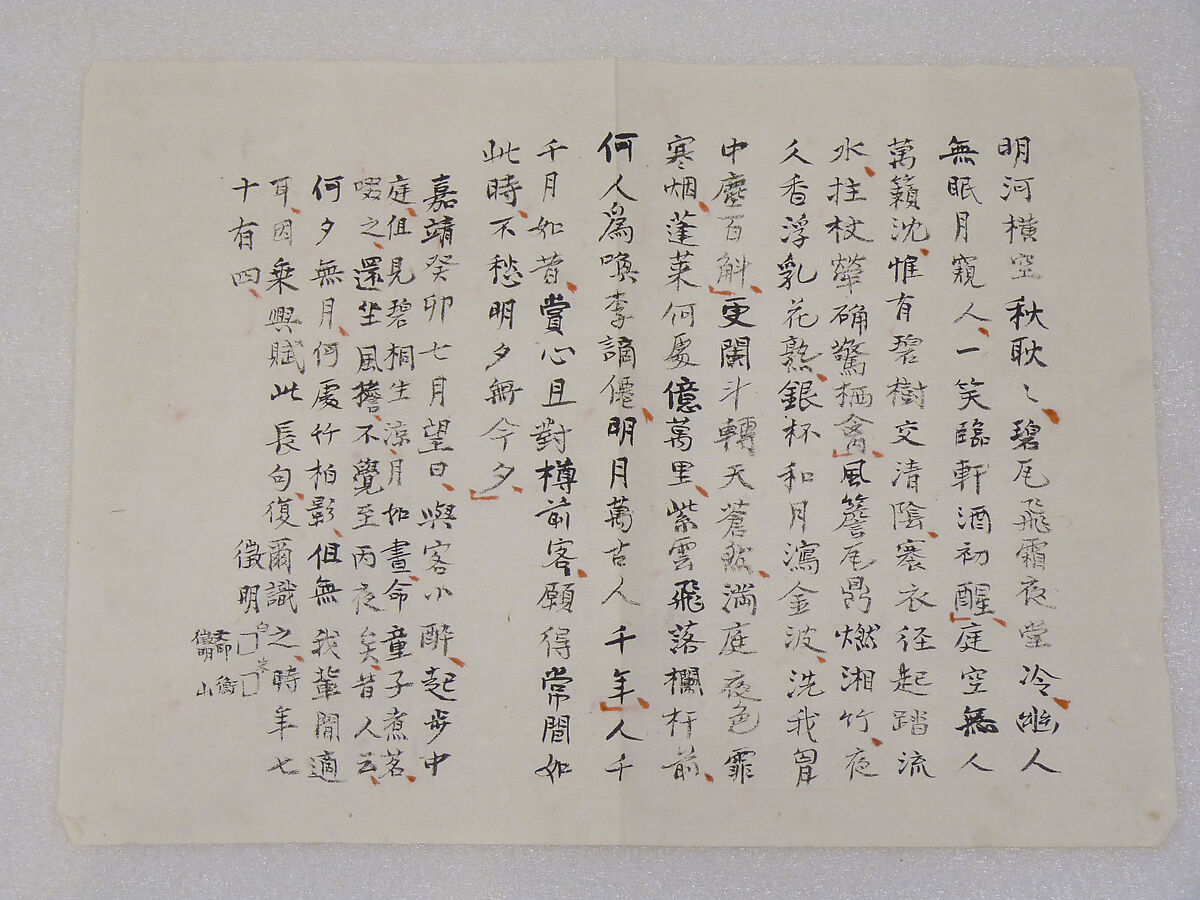 明河横空秋耿〻碧瓦飛霜夜堂冷幽人
無眠月窺人一笑臨軒酒初醒庭空無人
萬籟沈惟有碧樹交清陰褰衣徑起踏流
水拄杖犖确驚栖禽風簷瓦鼎燃湘竹夜
久香浮乳花熟銀杯和月瀉金波洗我胷
中塵百斛更闌斗轉天蒼然滿庭夜色霏
寒烟蓬萊何處億萬里紫雲飛落欄杆前
何人爲喚李謫僊明月萬古人千年人千
年月如昔賞心且對樽前客願得常閒如
此時不愁明夕無今夕
嘉靖癸卯七月望日與客小醉起步中
庭但見碧桐生涼月如晝命童子煮茗
啜之還坐風檐不覺至丙夜矣昔人云
何夕無月何處竹柏影但無我輩閒適
耳因乘興賦此長句復爾識之時年七
十有四 徵明
白 朱
文印徵明
衡山